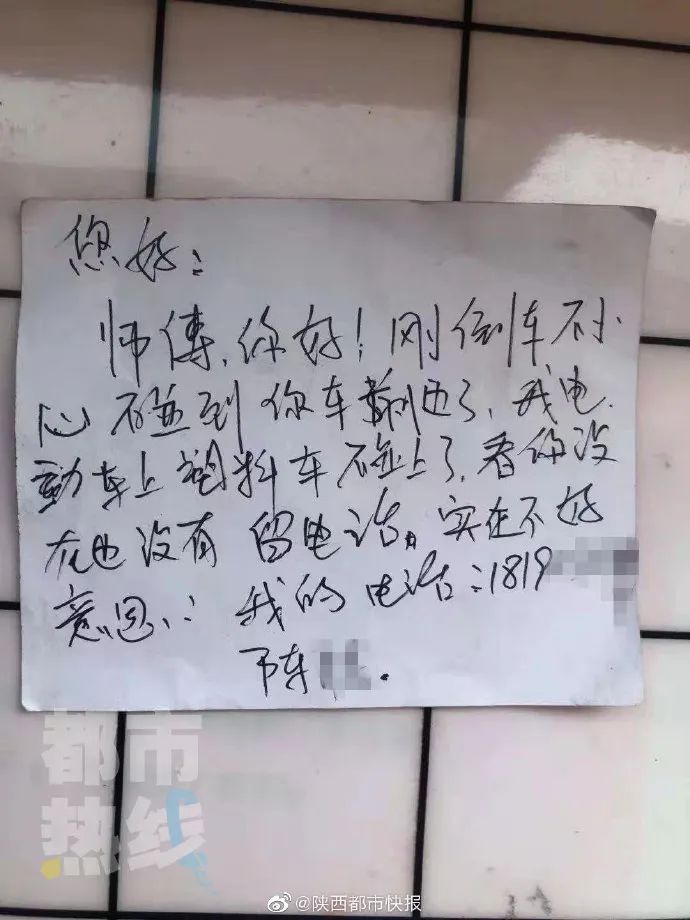 您好：
师傅，你好！刚倒车不小
心碰到你车前边了，我电
动车上塑料车碰上了，看你没
在也没有留电话，实在不好
意思，：我的电话：1819
陈
都市
热线
@陕西都市快报